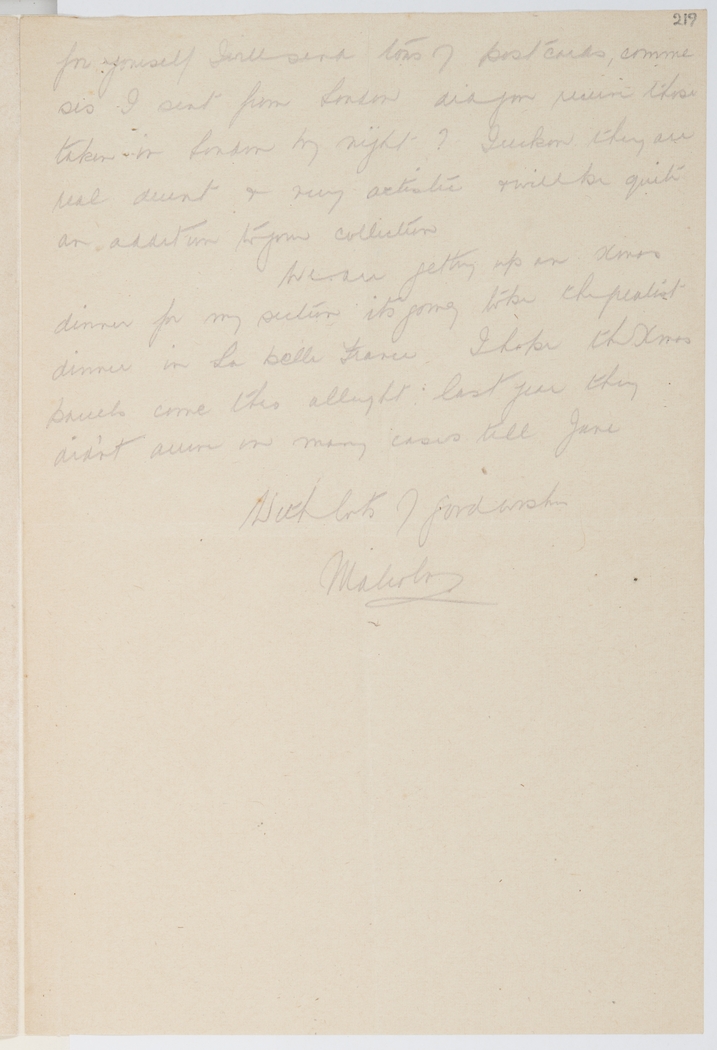 219
for yourself I will send tons of post cards, comme
sis I sent from London did you receive those
taken in London by night? I reckon they are
real decent & very artistic & will be quite
an addition to your collection
We are getting up an Xmas
dinner for my section its going to be
dinner in La belle France. I hope the Xmas
parcels come this allright: last year they
didn't arrive in many cases till June
With lots of good wishes
Malcolm